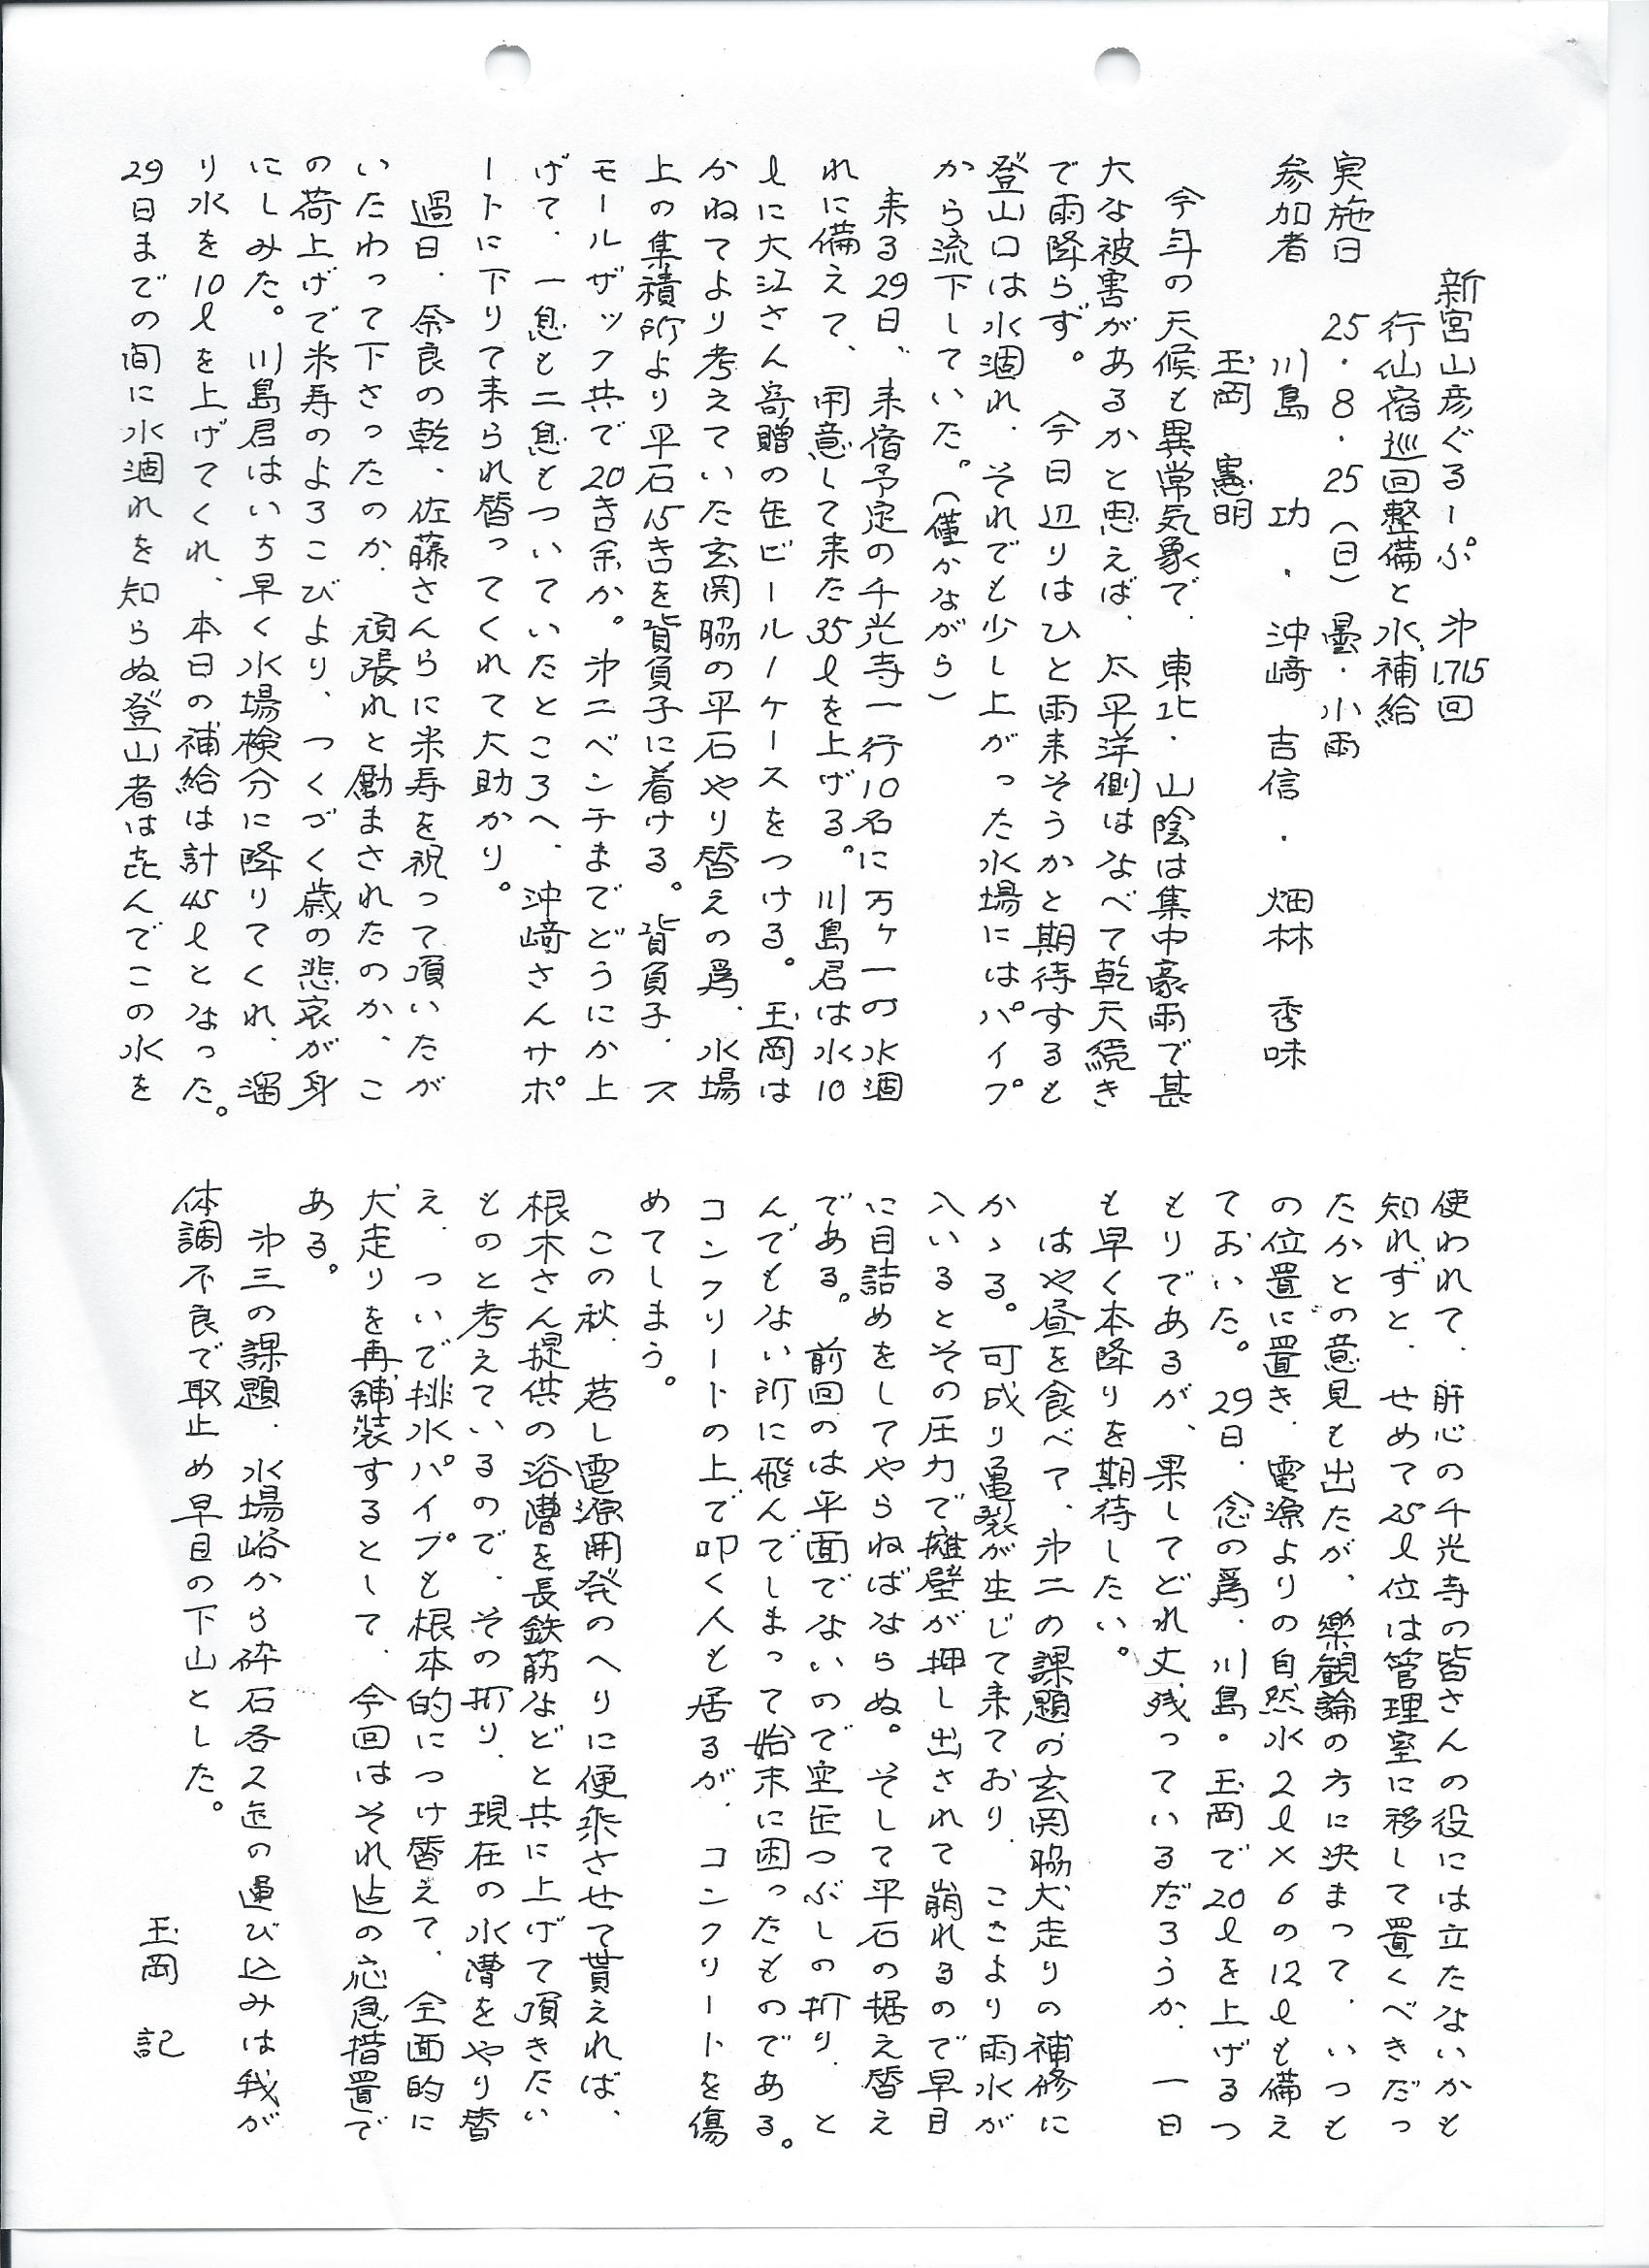 新宮山彦ぐるーぷ 沖1,715回
行仙宿巡回整備と水補給
実施日 25・8・25(日)曇・小雨
参加者 川島 功 ・ 沖﨑 吉信 ・ 畑林 秀味
玉岡 憲明
今年の天候も異常気象で、東北・山陰は集中豪雨で甚
大な被害があるかと思えば、太平洋側はなべて乾天続き
で雨降らず。 今日辺りはひと雨来そうかと期待するも
登山口は水涸れ、それでも少し上がった水場にはパイプ
から流下していた。(僅かながら)
来る29日、来宿予定の千光寺一行10名に万ヶ一の水涸
れに備えて、用意して来た35ℓを上げる。川島君は水10
ℓに大江さん寄贈の缶ビール一ケースをつける。玉岡は
かねてより考えていた玄関脇の平石やり替えの為、水場
上の集積所より平石15キロを背負子に着ける。背負子、ス
モールザック共で20キロ余か。第二ベンチまでどうにか上
げて、一息も二息もついていたところへ、沖﨑さんサポ
ートに下りて来られ替ってくれて大助かり。
過日、奈良の乾、佐藤さんらに米寿を祝って頂いたが
いたわって下さったのか、頑張れと励まされたのか、こ
の荷上げで米寿のよろこびより、つくづく歳の悲哀が身
にしみた。川島君はいち早く水場検分に降りてくれ、溜
り水を10ℓを上げてくれ、本日の補給は計45ℓとなった。
29日までの間に水涸れを知らぬ登山者は㐂んでこの水を
使われて、肝心の千光寺の皆さんの役には立たないかも
知れずと、せめて25ℓ位は管理室に移して置くべきだっ
たかとの意見も出たが、楽観論の方に決まって、いつも
の位置に置き、電源よりの自然水2ℓ×6の12ℓも備え
ておいた。29日、念の為、川島・玉岡で20ℓを上げるつ
もりであるが、果してどれ丈残っているだろうか、一日
も早く本降りを期待したい。
はや昼を食べて、第二の課題の玄関脇犬走りの補修に
かゝる。可成り亀裂が生じて来ており、こさより雨水が
入いるとその圧力で擁壁が押し出されて崩れるので早目
に目詰めをしてやらねばならぬ。そして平石の据え替え
である。前回のは平面でないので空缶つぶしの折り、と
んでもない所に飛んでしまって始末に困ったものである。
コンクリートの上で叩く人も居るが、コンクリートを傷
めてしまう。
この秋、若し電源開発のヘリに便乗させて貰えれば、
根木さん提供の浴漕を長鉄筋などと共に上げて頂きたい
ものと考えているので、その折り、現在の水漕をやり替
え、ついで排水パイプも根本的につけ替えて、全面的に
犬走りを再舗装するとして、今回はそれ迄の応急措置で
ある。
第三の課題、水場峪から砕石各ス缶の運び込みは我が
体調不良で取止め早目の下山とした。
玉岡 記